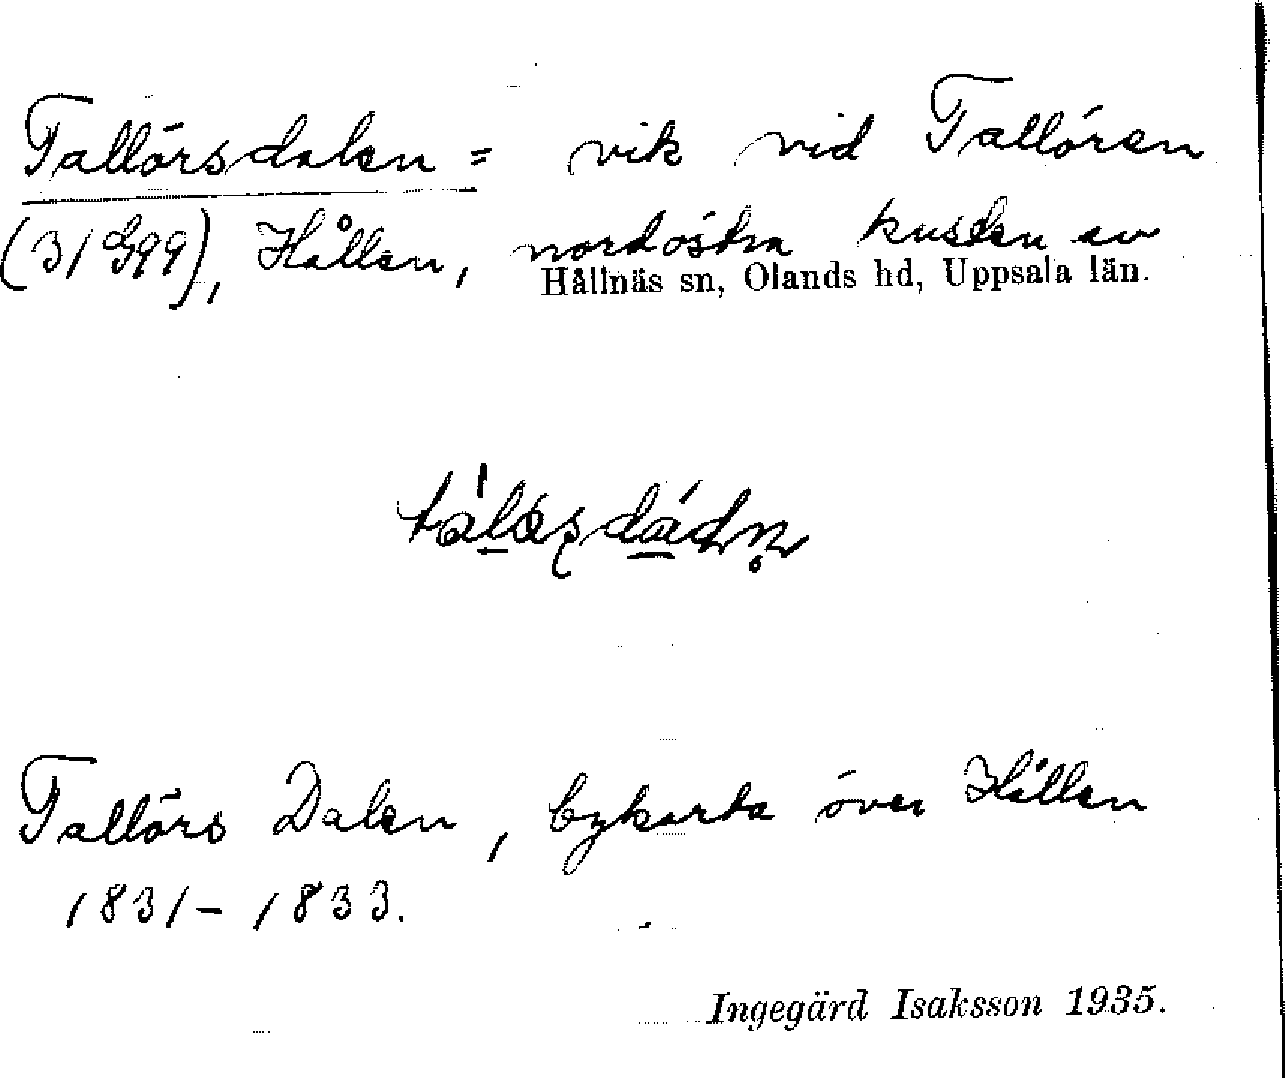 Tallörsdalen = vik vid Tallören
(31 G99), Hållen, nordöstra kusten av
Hållnäs sn, Olands hd, Uppsala län.
Tallörs Dalen, bykarta över Hållen
1831-1833.
Ingegärd Isaksson 1935.